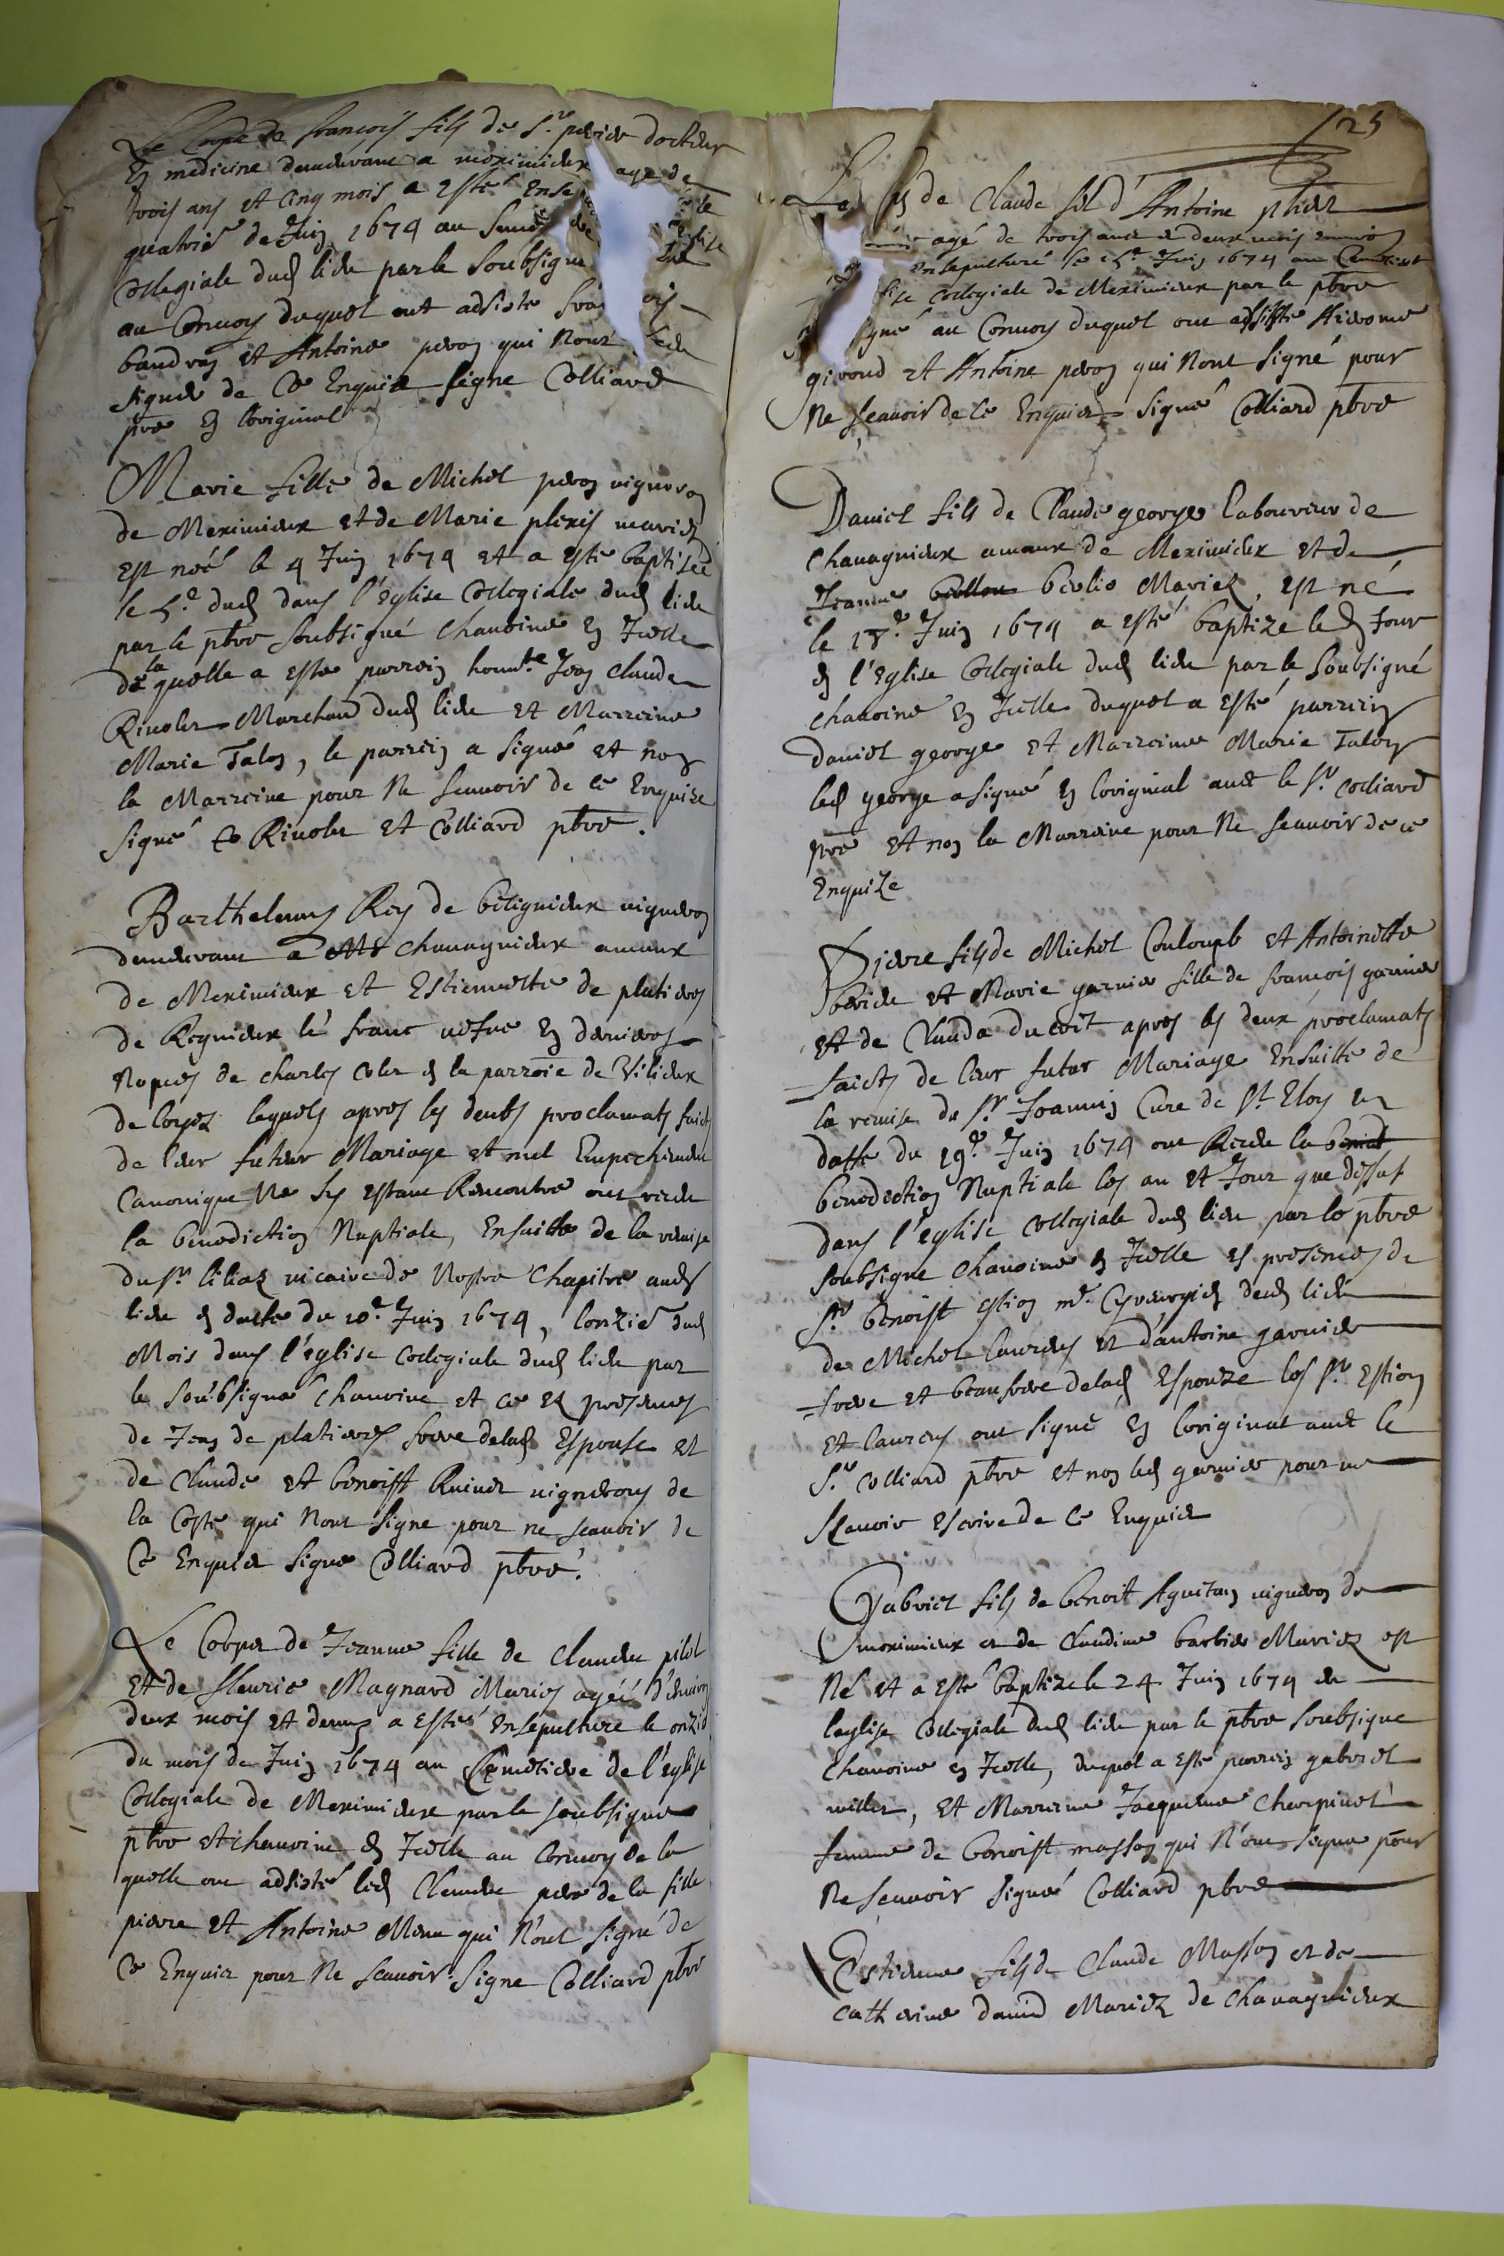 Le Corps de françois fils de Sr perier docteur
En medicine demeurant a meximieux agé de
trois ans et cinq mois a esté Ense
quatrie de Juin 1674 au
Collegiale dud lieu par le Soubsigne
au Convoy duquel ont adsisté
baudraz et Antoine peron qui Nont
signer de Ce Enquis signe Colliard
pbre En loriginal
Marie fille de Michel peron vigneron
de Meximieux et de Marie plexis mariez
Est née le 4 Juin 1674 et a esté baptisée
le 5e dud dans l'église Collegiale dud lieu
par le pbre soubsigné chanoine En Icelle
de la quelle a este parrein honnble Jean claude
Rivoler Marchand dud lieu et Marreine
Marie Talon, le parrein a signé et non
la Marreine pour Ne scauoir de ce Enquise
signé Rivoler et Colliard pbre.
Barthelemy Rey de béligneux vigneron
demeurant a chauagnieux amaux
de Meximieux et Estiennette de platieres
de Rignieux le franc vefue En dernieres
Nopces de charles En la parroie de Vilieux
de loyes lequels apres les deubs proclamats faicts
de leur futeur Mariage et nul Empechement
Canonique Ne sy estant Rencontré ont receu
la benediction Nuptiale, Ensuitte de la remise
du sr liliaz vicaire de Nostre Chapitre aud
lieu En datte du 10e Juin 1674, lonzie dud
Mois dans l'église Collegiale dud lieu par
le soubsigné Chanoine et ce En presences
de Jean de platieres frere delad Espouse et
de Claude et benoist Ruinet vignerons de
la Coste qui Nont signe pour ne scauoir de
Ce Enquis signe Colliard pbre.
Le Corps de Jeanne fille de Claude pilot
Et de fleurie Magnard Mariés agéé d'enuiron
deux mois et demy a esté Ensepulturé le onzie
du mois de Juin 1674 au Cemetiere de l'église
Collegiale de Meximieux par le soubsigne
pbre et chanoine En Icelle au Conuoy de la
quelle ont adsisté led Claude pere de la fille
pierre et Antoine Menu qui N'ont signé de
Ce Enquis pour Ne scauoir. Signe Colliard pbre
25
Le de Claude fils d'Antoine
agé de trois ans et deux mois enuiron
ensepulturé le 5e Juin 1674 au Cemetiere
Collegiale de Meximieux par le pbre
signé au Conuoy duquel ont assisté Hierome
girond et Antoine peron qui Nont signé pour
Ne scauoir de ce Enquis signé Colliard pbre
Daniel fils de Claude george laboureur de
Chauagnieux amaux de Meximieux et de
Jeanne berlio Mariez, est né
le 18e Juin 1674 a esté baptize led Jour
En l'Eglise Collegiale dud lieu par le soubsigné
chanoine En Icelle duquel a esté parrein
daniel george et Marreine Marie Talon
led george a signé En loriginal auec le sr Colliard
pbre et non la Marreine pour Ne scauoir de ce
Enquize
Pierre fils de Michel Couloumb et Antoinette
et Marie garnier fille de françois garnier
et de Clauda ducroit apres les deux proclamats
faicts de leur futur Mariage Ensuitte de
la remise de sr Joannin Curé de St Eloy en
datte du 19e Juin 1674 ont Receu la
benediction Nuptiale les an et Jour que dessus
dans l'eglise collegiale dud lieu par le pbre
soubsigne chanoine En Icelle Es presences de
sr benoist estion me Chirurgien dud lieu
de Michel laurens et d'antoine garnier
frere et beau frere delad Espouze les sr Estion
et laurens ont signé En loriginal auec le
Sr Colliard pbre et non led garnier pour ne
Scauoir escrire de Ce Enquis
Gabriel fils de benoit Aguitan vigneron de
meximieux et de claudine barbier Mariez est
Né et a esté baptizé le 24 Juin 1674 en
leglise Collegiale dud lieu par le pbre soubsigne
chanoine en Icelle, duquel a esté parrein gabriel
millet, et Marreine Jacqueme charpinet
femme de benoist masson qui N'ont signe pour
Ne scauoir signé Colliard pbre
Estienne fils de Claude Masson et de
catherine dauid Mariez de chauagnieux